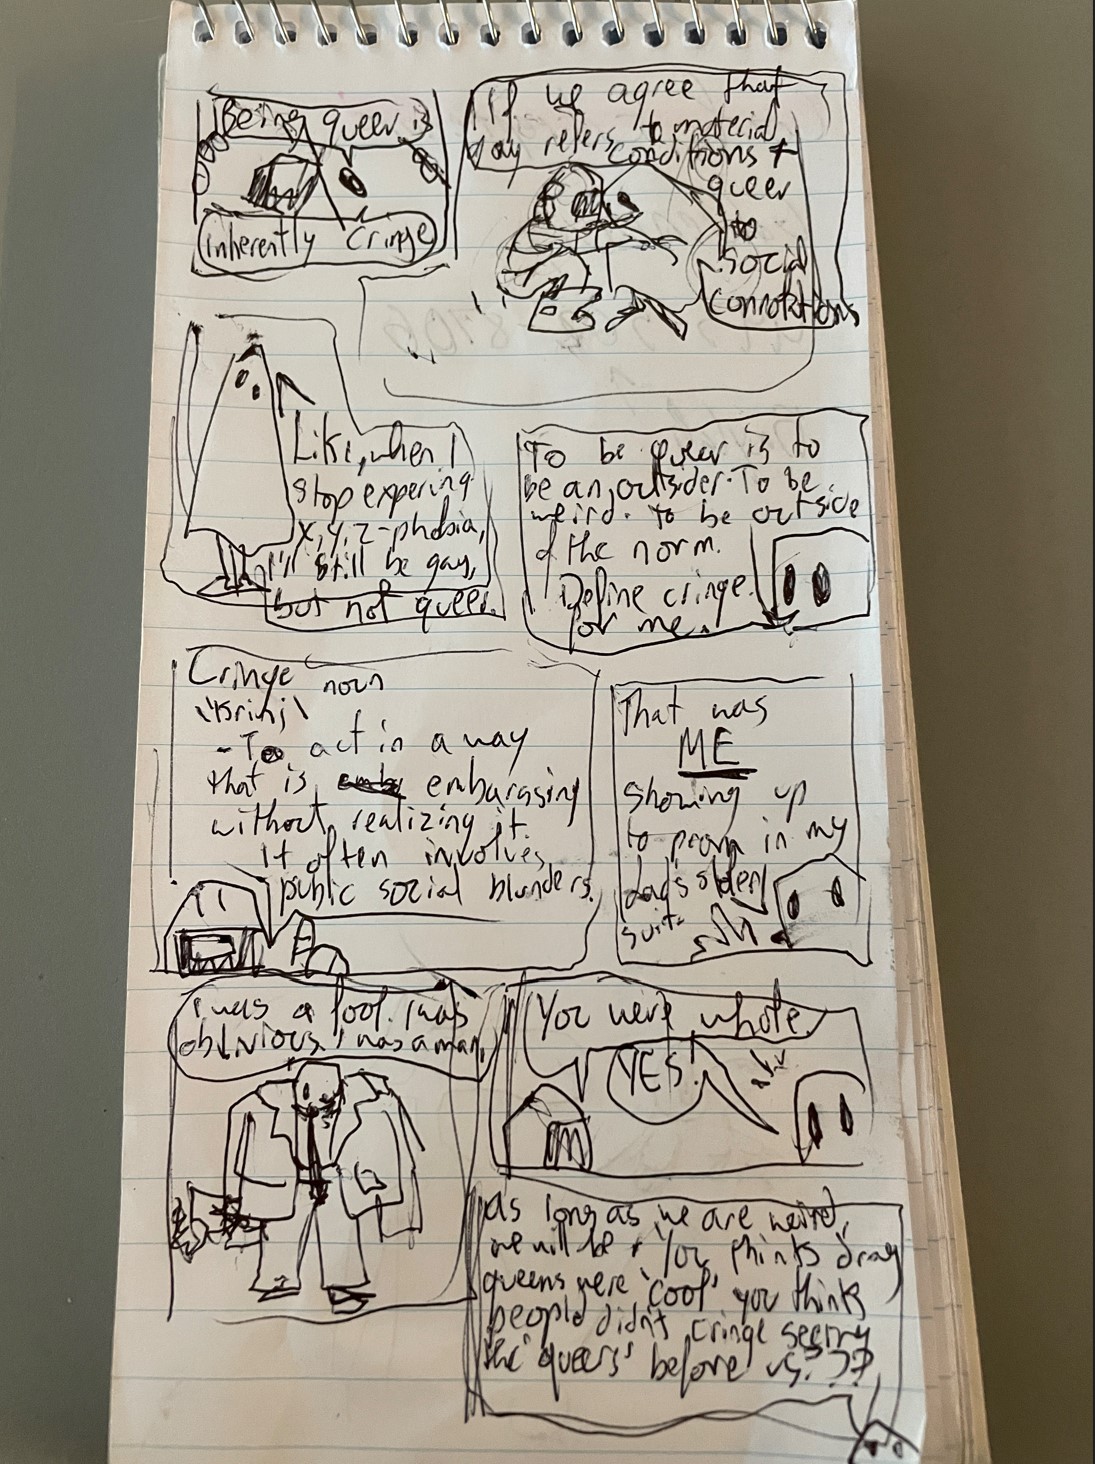 Being queer is
inherently cringe
If we agree that
gay refers to material
conditions +
queer
to
social
connotations
Like, when I
stop expering
x,y,z-phobia,
I'll still be gay,
but not queer.
To be queer is to
be an outsider. To be
weird. to be outside
of the norm.
Define cringe
for me.
Cringe noun
\'krinj\
- To act in a way
that is embarasing
without realizing it.
it often involves
public social blunders.
That was
ME
showing up
to prom in my
dad's stolen
suit.
I was a fool. I was
oblivious. I was a man.
You were whole.
YES!
as long as we are weird,
we will be + You thinks drag
queens were 'cool' you think
people didn't cringe seeing
the 'queers' before us???